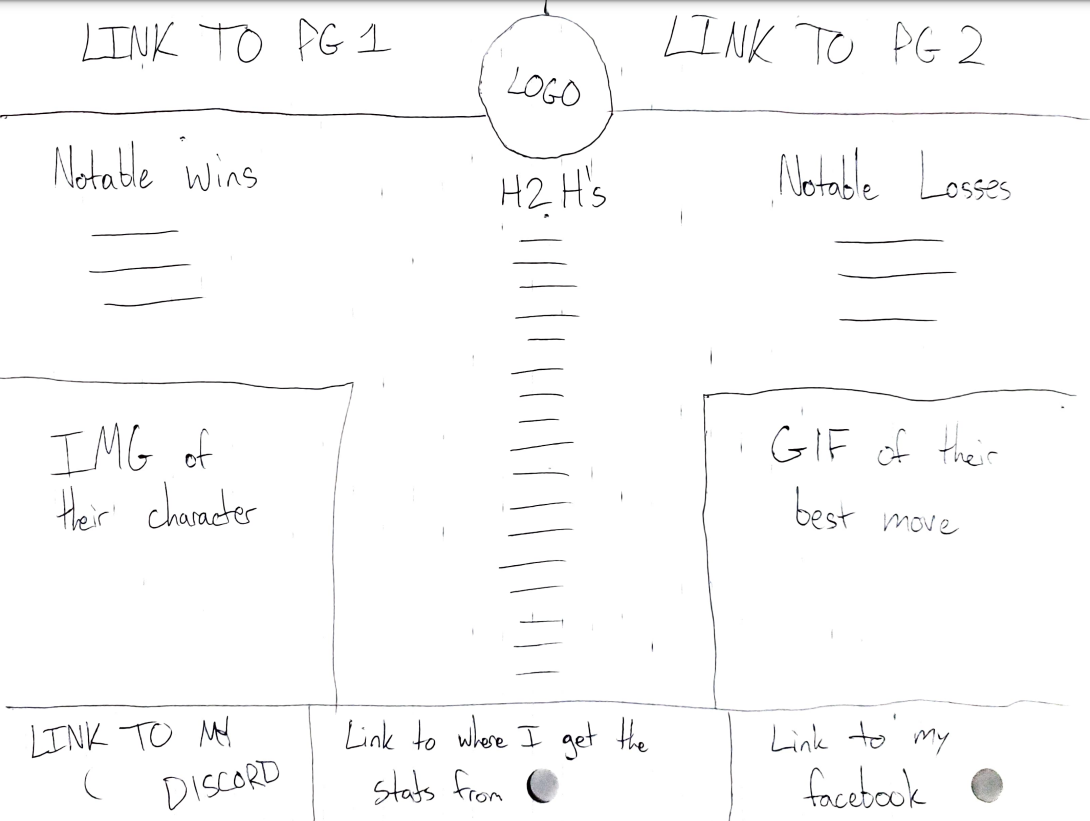 LINK TO PG 1
LOGO
LINK TO PG 2
Notable Wins
H2H's
Notable Losses
IMG of
their character
GIF of their
best move
LINK TO MY
DISCORD
Link to where I get the
stats from
Link to my
facebook